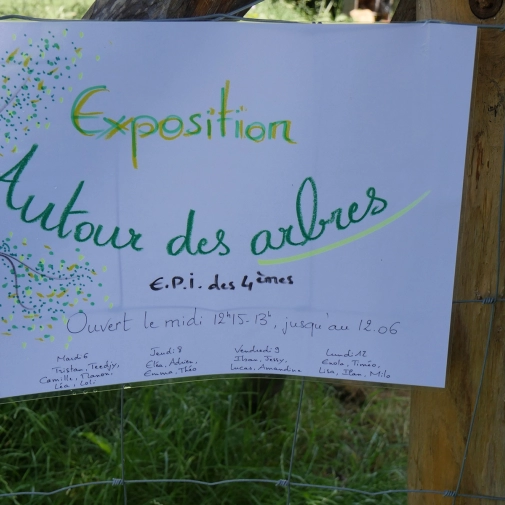 Exposition
Autour des arbres
E.P.i. des 4èmes
Ouvert le midi 12h15-13h, jusqu'au 12.06
Mardi 6
Tristan, Teedjy,
Camille, Manon,
Léa, Loli
Jeudi 8
Eléa, Adrien,
Emma, Théo
Vendredi 9
Ilhan, Jessy,
Lucas, Amandine
Lundi 12
Enola, Timéo,
Lisa, Ilan, Milo